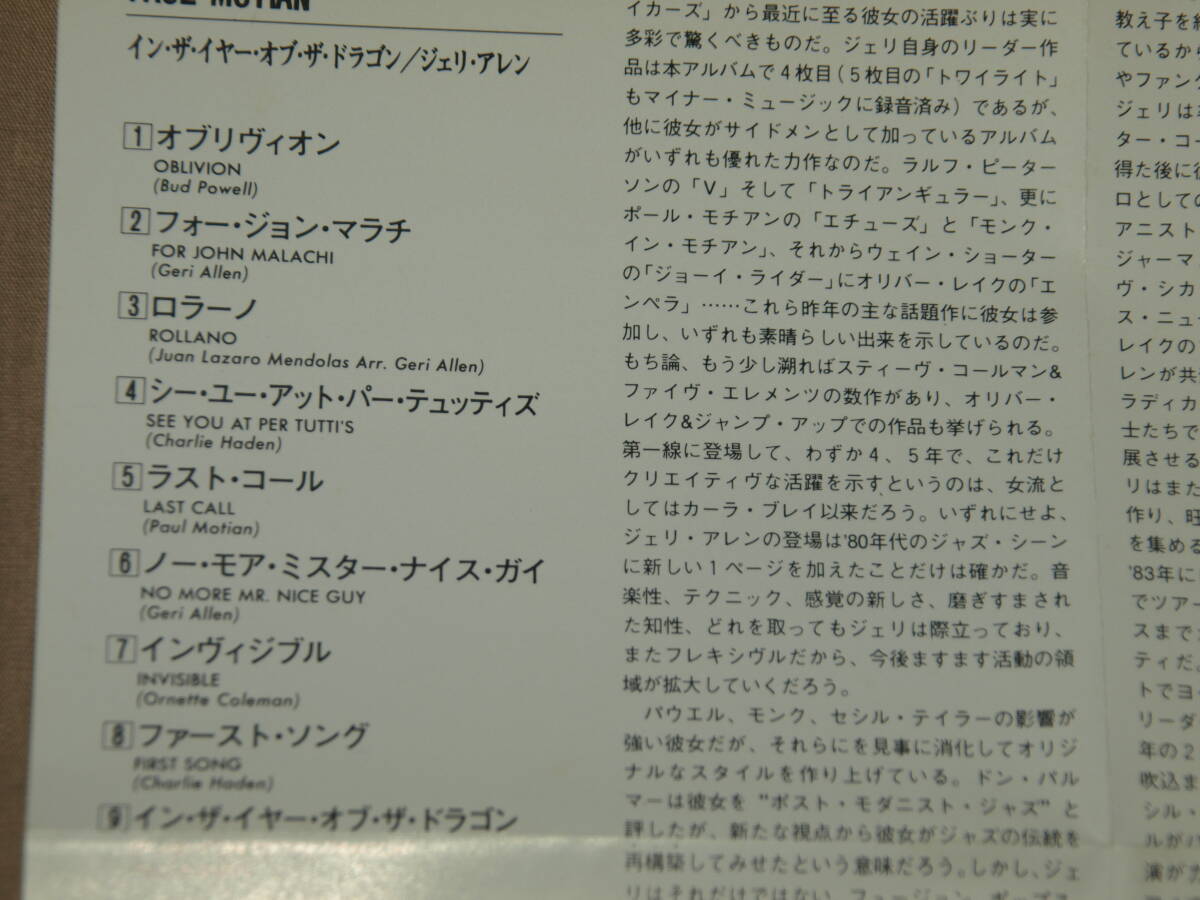 PAUL MOTIAN
イン・ザ・イヤー・オブ・ザ・ドラゴン/ジェリ・アレン
1 オブリヴィオン
OBLIVION
(Bud Powell)
2 フォー・ジョン・マラチ
FOR JOHN MALACHI
(Geri Allen)
3 ロラーノ
ROLLANO
(Juan Lazaro Mendolas Arr. Geri Allen)
4 シー・ユー・アット・パー・テュッティズ
SEE YOU AT PER TUTTI'S
(Charlie Haden)
5 ラスト・コール
LAST CALL
(Paul Motian)
6 ノー・モア・ミスター・ナイス・ガイ
NO MORE MR. NICE GUY
(Geri Allen)
7 インヴィジブル
INVISIBLE
(Ornette Coleman)
8 ファースト・ソング
FIRST SONG
(Charlie Haden)
9 イン・ザ・イヤー・オブ・ザ・ドラゴン
イカーズ」から最近に至る彼女の活躍ぶりは実に
多彩で驚くべきものだ。ジェリ自身のリーダー作
品は本アルバムで4枚目(5枚目の「トワイライト」
もマイナー・ミュージックに録音済み)であるが、
他に彼女がサイドメンとして加っているアルバム
がいずれも優れた力作なのだ。ラルフ・ピーター
ソンの「V」そして「トライアンギュラー」、更に
ポール・モチアンの「エチューズ」と「モンク・
イン・モチアン」、それからウェイン・ショーター
の「ジョーイ・ライダー」にオリバー・レイクの「エ
ンペラ」……これら昨年の主な話題作に彼女は参
加し、いずれも素晴らしい出来を示しているのだ。
もち論、もう少し溯ればスティーヴ・コールマン&
ファイヴ・エレメンツの数作があり、オリバー・
レイク&ジャンプ・アップでの作品も挙げられる。
第一線に登場して、わずか4、5年で、これだけ
クリエイティヴな活躍を示すというのは、女流と
してはカーラ・ブレイ以来だろう。いずれにせよ、
ジェリ・アレンの登場は'80年代のジャズ・シーン
に新しい1ページを加えたことだけは確かだ。音
楽性、テクニック、感覚の新しさ、磨ぎすまされ
た知性、どれを取ってもジェリは際立っており、
またフレキシヴルだから、今後ますます活動の領
域が拡大していくだろう。
パウエル、モンク、セシル・テイラーの影響が
強い彼女だが、それらにを見事に消化してオリジ
ナルなスタイルを作り上げている。ドン・パル
マーは彼女を"ポスト・モダニスト・ジャズ"と
評したが、新たな視点から彼女がジャズの伝統を
再構築してみせたという意味だろう。しかし、ジェ
リはそれだけではない。フュージョン、ポップス
教え子を
ているから
やファンク
ジェリは
ター・コー
得た後に
ロとしての
アニスト
ジャーマ
ヴ・シカ
ス・ニュー
レイクの
レンが共
ラディカ
士たちで
展させる
リはまた
作り、旺
を集める
'83年に
でツアー
スまで
ティだ。
トでヨ
リーダ
年の2
吹込ま
シル・
ルがパ
演が